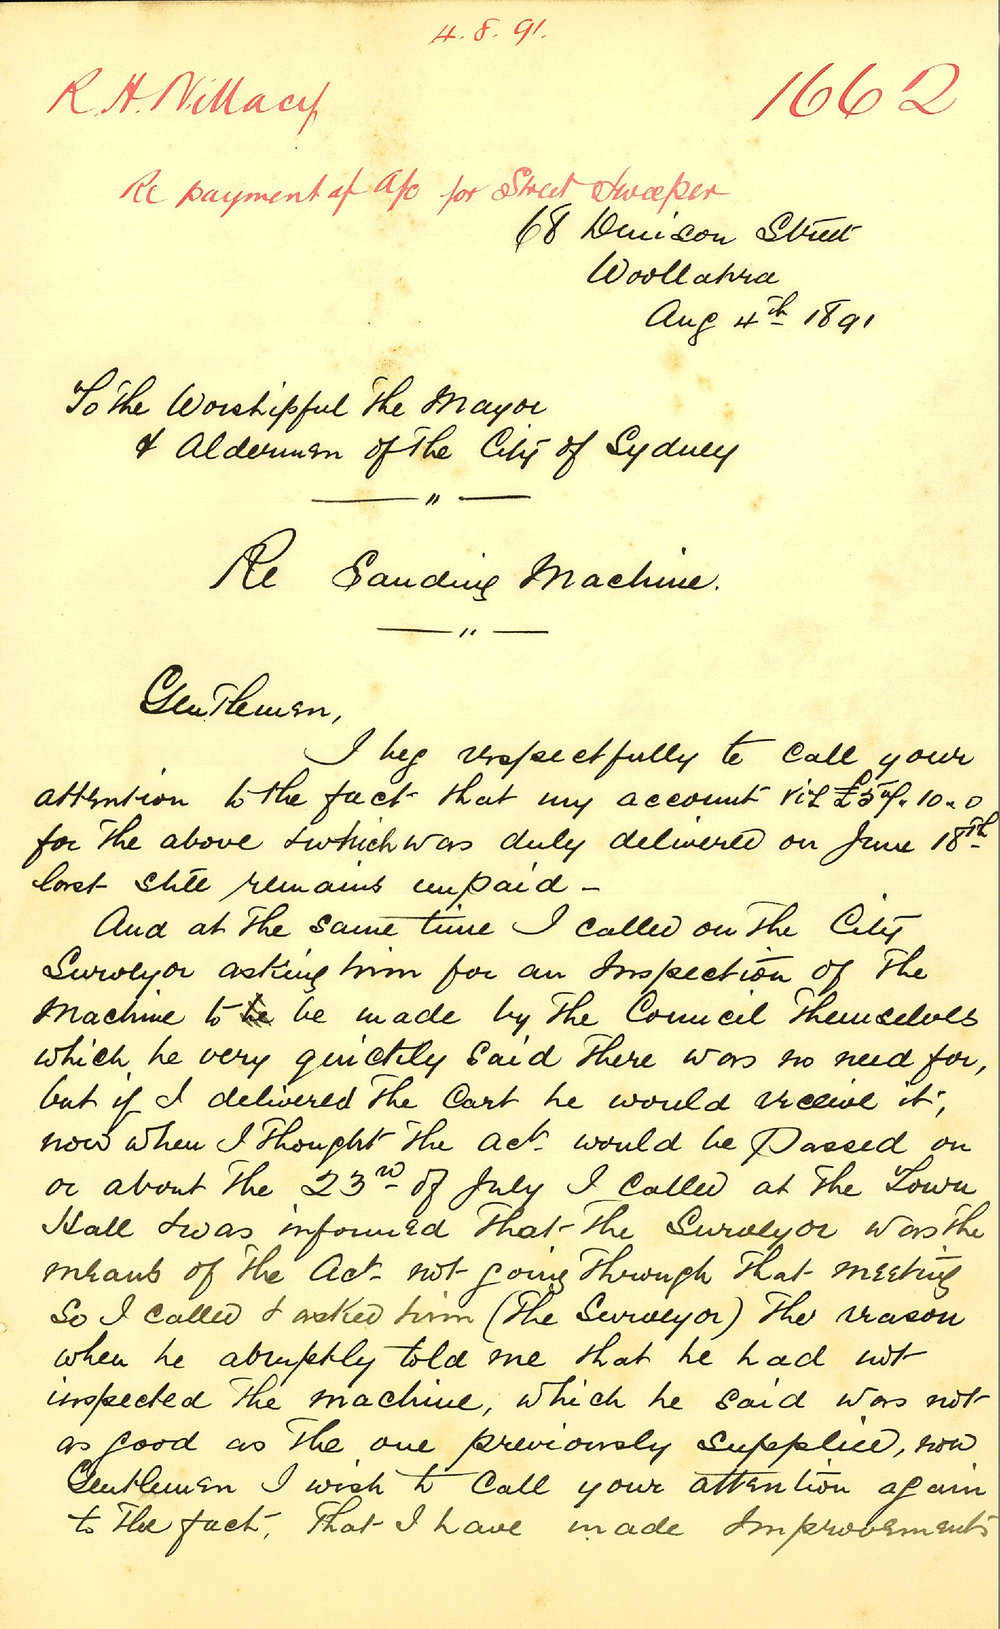 4. 8. 91.
R. H. Villacy
1662
Re payment of A/c for Street Sweeper
68 Denison Street
Woollahra
Aug 4th 1891
To the Worshipful the Mayor
& Aldermen of the City of Sydney
Re Sanding Machine.
Gentlemen,
I beg respectfully to call your
attention to the fact that my account viz
for the above & which was duly delivered on June 18th
last still remains unpaid –
And at the same time I called on the City
Surveyor asking him for an Inspection of the
Machine to be be made by the Council themselves
which he very quickly said there was no need for,
but if I delivered the Cart he would receive it,
now when I thought the act. would be Passed on
or about the 23rd of July I called at the Town
Hall & was informed that the Surveyor was the
means of the Act. not going through that meeting
So I called & asked him (the Surveyor) the reason
when he abruptly told me that he had not
inspected the machine, which he said was not
as good as the one previously supplied, now
Gentlemen I wish to call your attention again
to the fact, that I have made Improvements